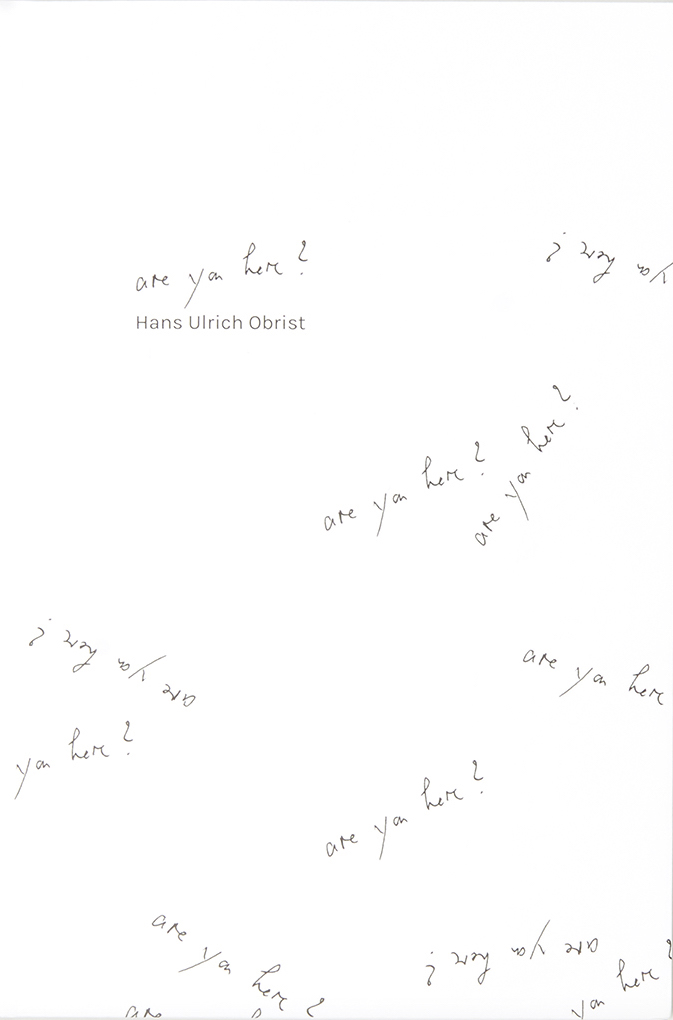 are you here?
you here?
Hans Ulrich Obrist
are you here?
are you here?
are you here?
are you here
you here?
are you here?
are you here?
are you here?
you here?
are